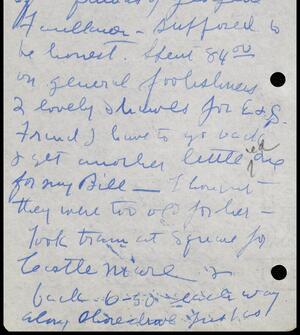 Faulkner - supposed to
be honest. Spent 84.00
on general foolishness.
2 lovely shawls for E & G.
Find I have to go back
& get another little
for my Bill - I
they were too for her -
Took tram at Square for
Castle
back. 6-30 - each way
along just as